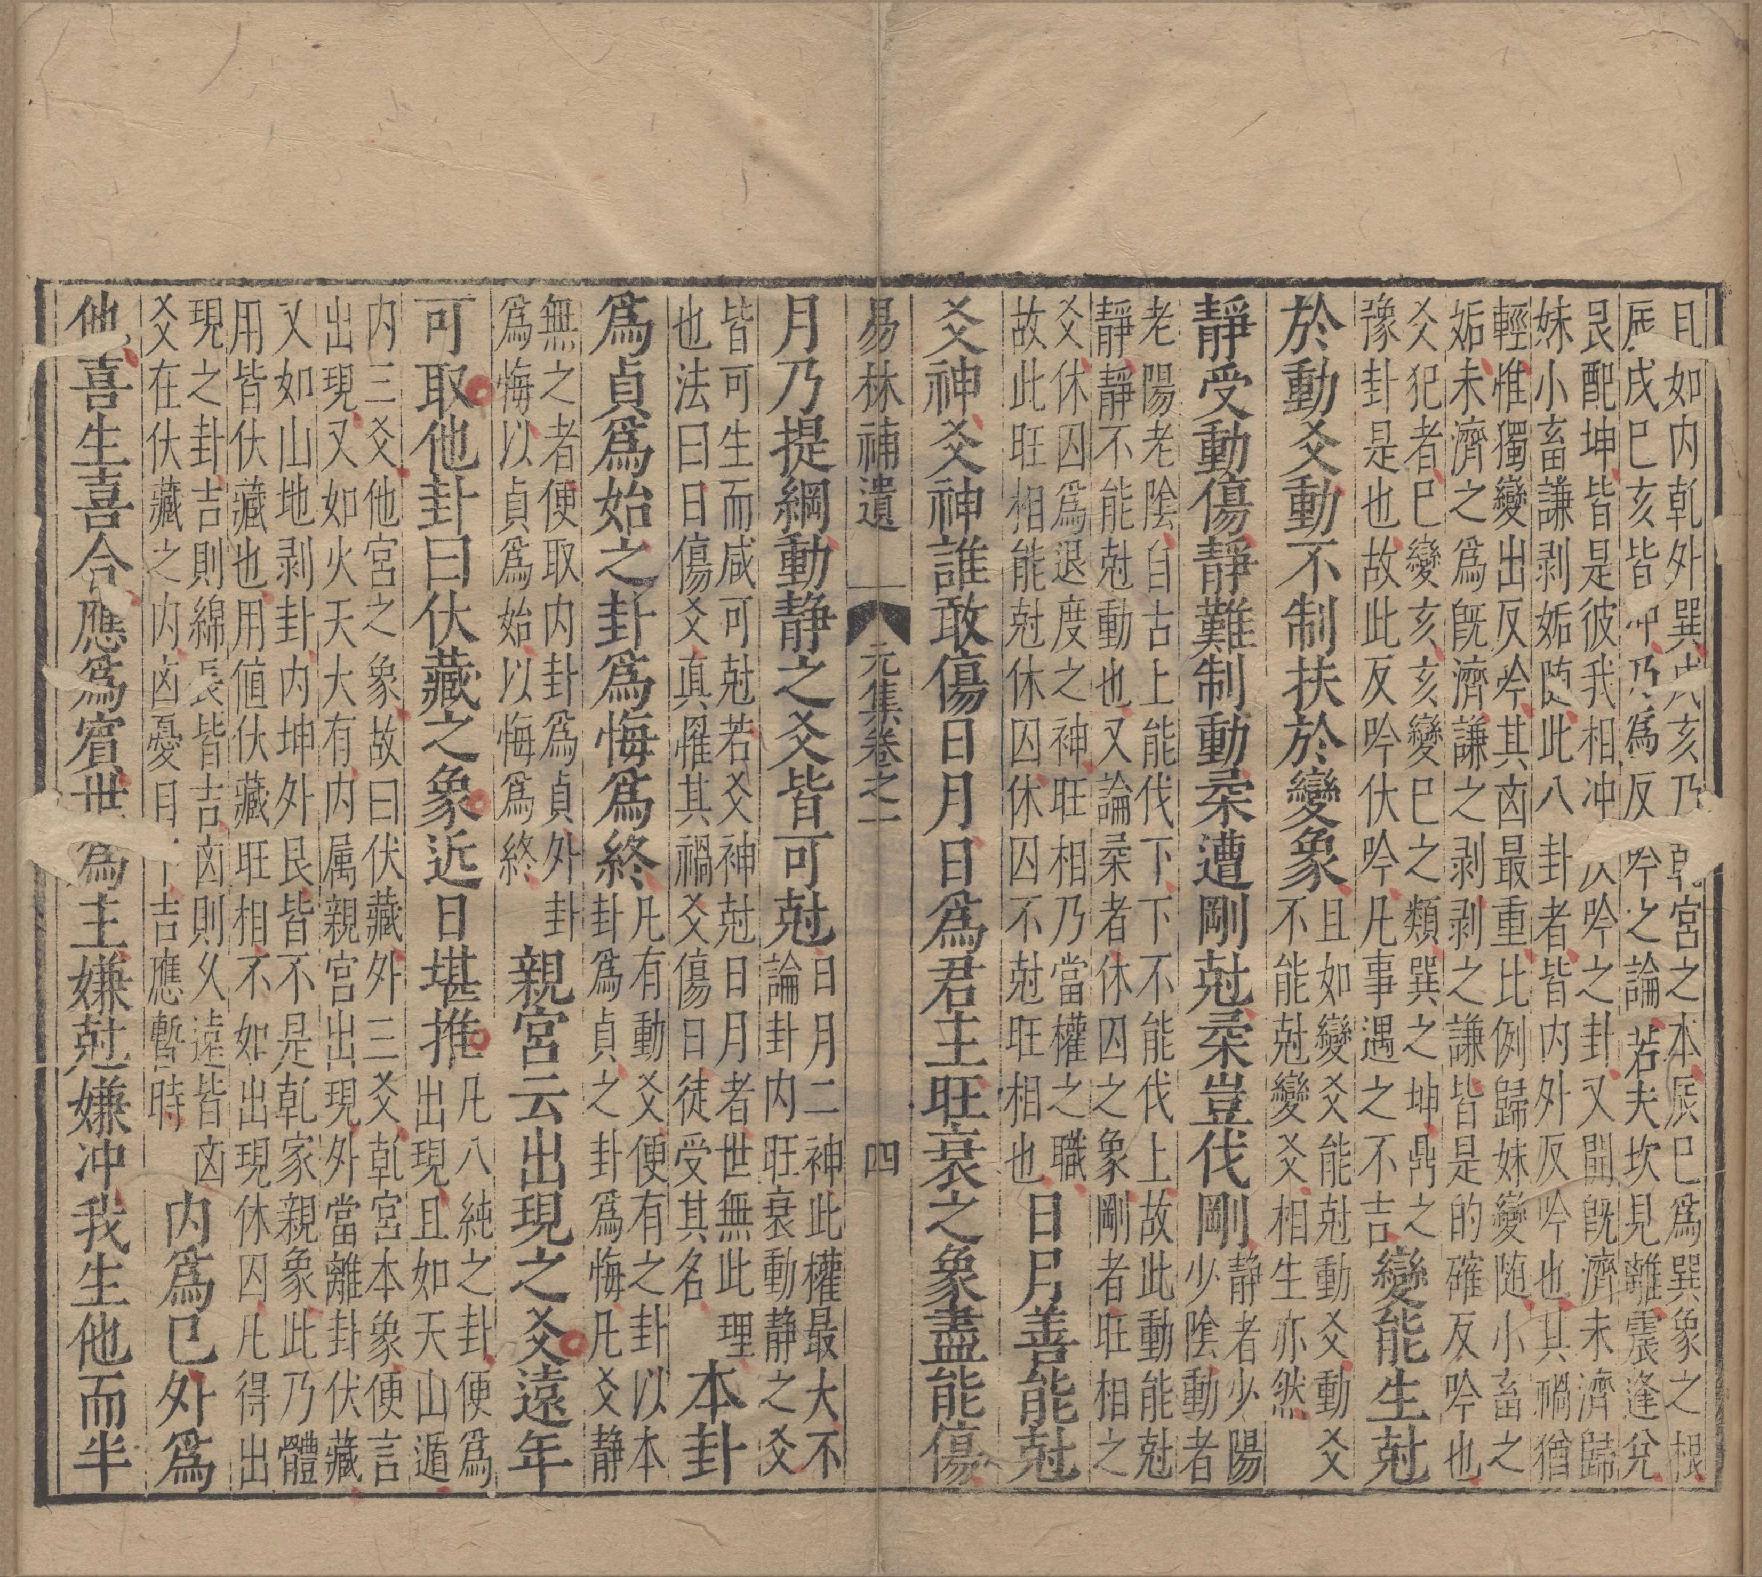 且如内乹外巽戌亥乃乹宮之本辰巳爲巽象之根
辰戌巳亥皆冲乃爲反吟之論若夫坎見離震逢兌
艮配坤皆是彼我相冲反吟之卦又間旣濟未濟歸
妹小畜謙剥姤随此八卦者皆内外反吟也其禍猶
輕惟獨變出反吟其囟最重比例歸妹變随小畜之
姤未濟之爲旣濟謙之剥剥之謙皆是的確反吟也
爻犯者巳變亥亥變巳之類巽之坤鼎之
豫卦是也故此反吟伏吟凡事遇之不吉
變能生尅
於動爻動不制扶於變象
且如變爻能尅動爻動爻
不能尅變爻相生亦然
靜受動傷靜難制動柔遭剛尅柔豈伐剛
靜者少陽
少陰動者
老陽老陰自古上能伐下下不能伐上故此動能尅
靜靜不能尅動也又論柔者休囚之象剛者旺相之
爻休囚爲退度之神旺相乃當權之職
故此旺相能尅休囚休囚不尅旺相也
日月善能尅
爻神爻神誰敢傷日月日爲君主旺衰之象盡能傷
易林補遺 元集卷之一 四
月乃提綱動静之爻皆可尅
日月二神此權最大不
論卦内旺衰動靜之爻
皆可生而咸可尅若爻神尅日月者世無此理
也法曰日傷爻真罹其禍爻傷日徒受其名
本卦
爲貞爲始之卦爲悔爲終
凡有動爻便有之卦以本
卦爲貞之卦爲悔凡爻静
無之者便取内卦爲貞外卦
爲悔以貞爲始以悔爲終
親宮云出現之爻遠年
可取他卦曰伏藏之象近日堪推
凡八純之卦便爲
出現且如天山遁
内三爻他宮之象故曰伏藏外三爻乹宮本象便言
出現又如火天大有内属親宮出現外當離卦伏藏
又如山地剥卦内坤外艮皆不是乹家親象此乃體
用皆伏藏也用値伏藏旺相不如出現休囚凡得出
現之卦吉則綿長皆吉囟則久遠皆囟
爻在伏藏之内囟憂目下吉應暫時
内爲已外爲
他喜生喜合應爲賓世爲主嫌尅嫌冲我生他而半